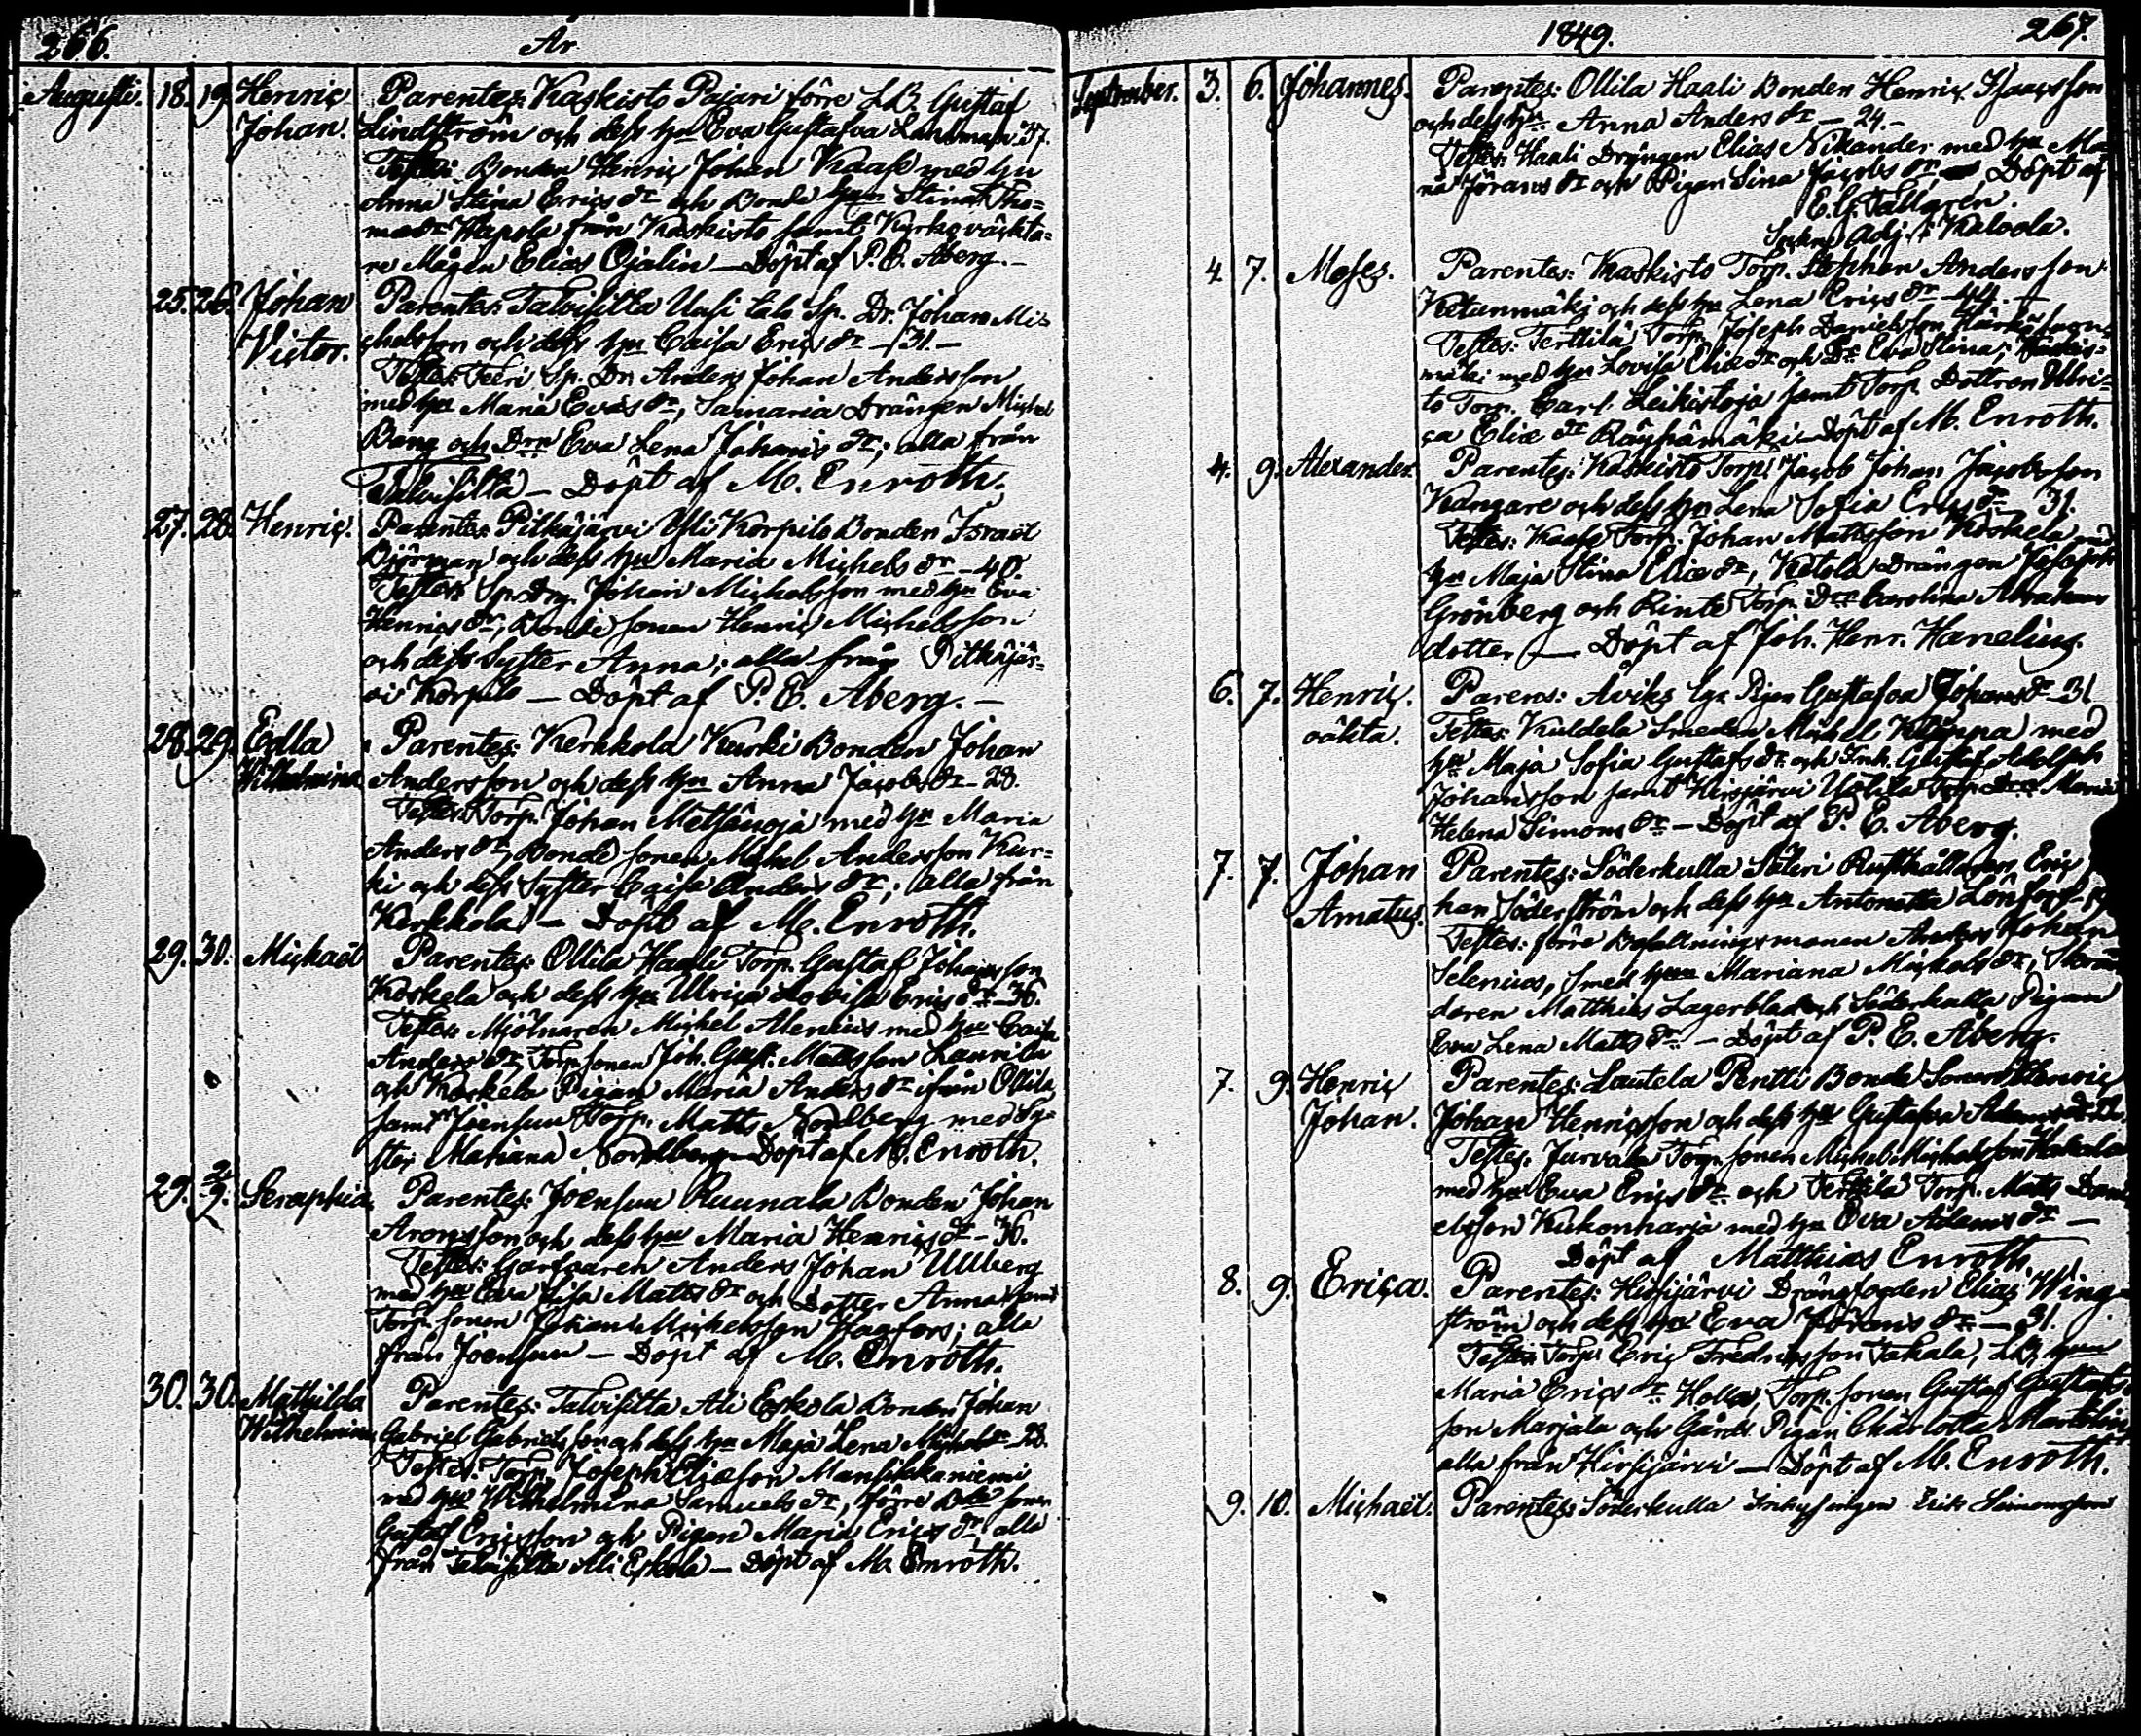 266. År
Augusti. 18. 19. Henriç Parentes: Kaskisto Pajari förre LB. Gustaf
Johan. Lindström och dess hu Eva Gustafva Landman. 37.
Testes: Bonden Henriç Johan Kaase med hu
Anna Stina Erics dr och Bonde hun Stina Tho=
mædr Uapola från Kaskisto samt Kyrkoväckta=
re Mågen Elias Ojalin — Döpt af P. E. Aberg. —
25. 26. Johan Parentes: Talvisilta Uusi talo Sp. Dr. Johan Mi=
Victor. chelsson och dess hu Caisa Erics dr — 31. —
Testes: Teeri Sp. Dr. Anders Johan Andersson
med hu Maria Evas dr, Samaria Drängen Michel
Bang och Drn Eva Lena Johans dr; alla från
Talvisilta — Döpt af M. Enroth.
27. 28. Henriç. Parentes: Pitkäjärvi Yli Korpilo Bonden Israël
Björman och dess hu Maria Michels dr — 40.
Testes: Sp. Drg. Johan Michelsson med hu Eva
Henrics dr, Bonde sonen Henriç Michelsson
och dess Syster Anna; alla från Pitkäjär=
vi Korpilo — Döpt af P. E. Aberg. —
28. 29. Edla Parentes: Kerkkola Kurki Bonden Johan
Wilhelmina Andersson och dess hu Anna Jacobs dr — 28.
Testes: Torp. Johan Metsänoja med hu Maria
Anders dr, Bonde sonen Michel Andersson Kur=
ki och dess Syster Caisa Anders dr; alla från
Kerkkola — Döpt af M. Enroth.
29. 30. Michaël Parentes: Ollila Haali Torp. Gustaf Johansson
Koskela och dess hu Ulrica Lovisa Erics dr — 36.
Testes: Mjölnaren Michel Alenius med hu Caisa
Anders dr, Torp sonen Joh. Gust. Mattsson Laurila
och Koskela Pigan Maria Anders dr ifrån Ollila,
samt Joensuu Torp. Matts Nordberg med Sy=
ster Mariana Nordberg — Döpt af M. Enroth.
29. 2/9. Seraphia. Parentes: Joensuu Ruunala Bonden Johan
Aronsson och dess hu Maria Henrics dr — 36.
Testes: Garfvaren Anders Johan Ullberg
med hu Eva Lisa Matts dr och Dotter Anna samt
Torp. sonen Johan Michelsson Haafors; alla
från Joensuu — Döpt af M. Enroth.
30. 30. Mathilda Parentes: Talvisilta Ali Eskola Bonden Johan
Wilhelmina Gabriel Gabrielsson och dess hu Maja Lena Michels dr — 28.
Testes: Torp. Joseph Eliæson Mansikkaniemi
med hu Wilhelmina Samuels dr, förre Bde sonen
Gustaf Ericsson och Pigan Maria Erics dr alla
från Talvisilta Ali Eskola — Döpt af M. Enroth.
1849. 267.
September. 3. 6. Johannes. Parentes: Ollila Haali Bonden Henric Isaacsson
och dess hu. Anna Anders dr — 24. —
Testes: Haali Drängen Elias Nikander med hu Ma=
ria Jörans dr och Pigan Sina Jacobs dr, Döpt af
E. G. Tallgrén.
Sockne Adj. i Kalvola.
4. 7. Moses. Parentes: Kaskisto Torp. Stephan Andersson
Ketunmäki och dess hu Lena Erics dr — 44. —
Testes: Terttilä Torp. Joseph Danielsson
mäki med hu Lovisa Eliæ dr och Dr. Eva Stina; Kaskis=
to Torp. Carl Leikistoja samt Torp. Dottren Ulri=
ca Eliæ dr Räyhämäki — Döpt af M. Enroth.
4. 9. Alexander. Parentes: Kaskisto Torp. Jacob Johan Jacobsson
Kangare och dess hu Lena Sofia Erics dr 31.
Testes: Kaase Torp. Johan Mattsson Koskela med
hu Maja Stina Eliæ dr, Ketola Drängen Joseph
Grönberg och Rinte Torp. Dr. Carolina Abrahams
dotter — Döpt af Joh. Henr. Hanelius.
6. 7. Henric. Parens: Åviks lgr. Pigan Gustafva Johans dr — 31
oäkta. Testes: Kuldela Smeden Michel Klöppa med
hu Maja Sofia Gustafs dr och Inh. Gustaf Adolph
Johansson samt Hirsjärvi Uotila Torp. Dr. Maria
Helena Simons dr — Döpt af P. E. Aberg.
7. 7. Johan Parentes: Söderkulla Säteri Rusthållaren Eric
Amatus. han Söderström och dess hu Antonetta Lönfors
Testes: förre Befallningsmannen Anders Johan
Selenius, Smed hun Mariana Michels dr, Skräd=
daren Matthias Lagerblad och Söderkulla Pigan
Eva Lena Matts dr — Döpt af P. E. Åberg.
7. 9. Henric Parentes: Lautela Pentti Bonde Sonen Henric
Johan. Johan Henricsson och dess hu Gustafva
Testes: Jurvala Torp. sonen Michel Michelsson Hakala
med hu Eva Erics dr och Terttilä Torp. Matts Dani=
elsson Kukonharja med hu Eva Adams dr —
Döpt af Matthias Enroth.
8. 9. Erica. Parentes: Hirsijärvi Drängfogden Elias Wing=
ström och dess hu Eva Jörans dr — 31.
Testes: Torp. Eric Fredricsson Takala, LB hun
Maria Erics dr Holla, Torp. sonen Gustaf Gustafs=
son Marjala och Gårds Pigan Charlotta Martelin
alla från Hirsijärvi — Döpt af M. Enroth.
9. 10. Michaël. Parentes: Söderkulla Inhysingen Erik Simonsson